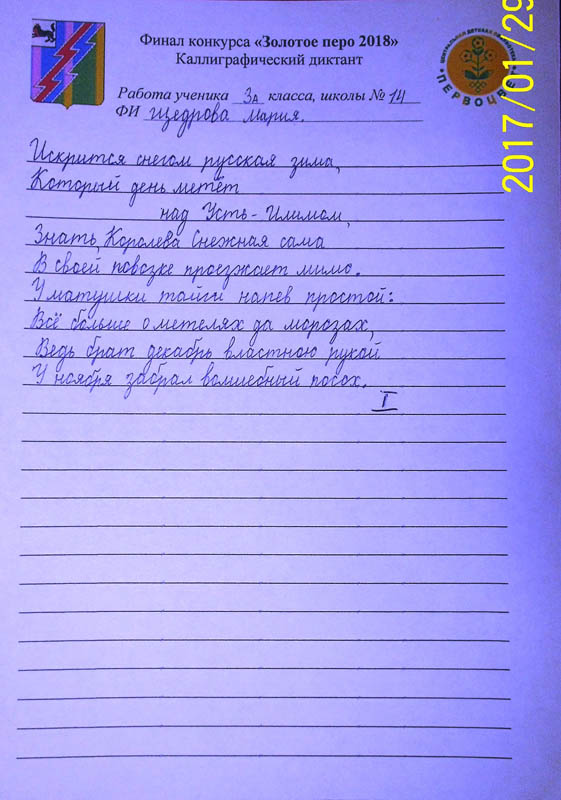 Финал конкурса «Золотое перо 2018»
Каллиграфический диктант
Работа ученика 3А класса, школы № 14
ФИ Щедрова Мария.
Искрится снегом русская зима,
Который день метёт
над Усть-Илимом,
Знать, Королева Снежная сама
В своей повозке проезжает мимо.
У матушки тайги напев простой:
Всё больше о метелях да морозах,
Ведь брат декабрь властною рукой
У ноября забрал волшебный посох.
I
ЦЕНТРАЛЬНАЯ ДЕТСКАЯ
ПЕРВОЦВЕТ
2017/01/29